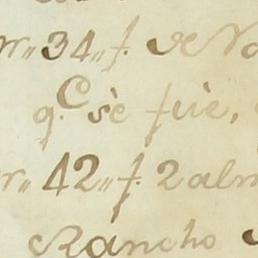 r„ 34„ f. de No
q.C sè füe,
r„ 42„ f. 2 alm
Rancho